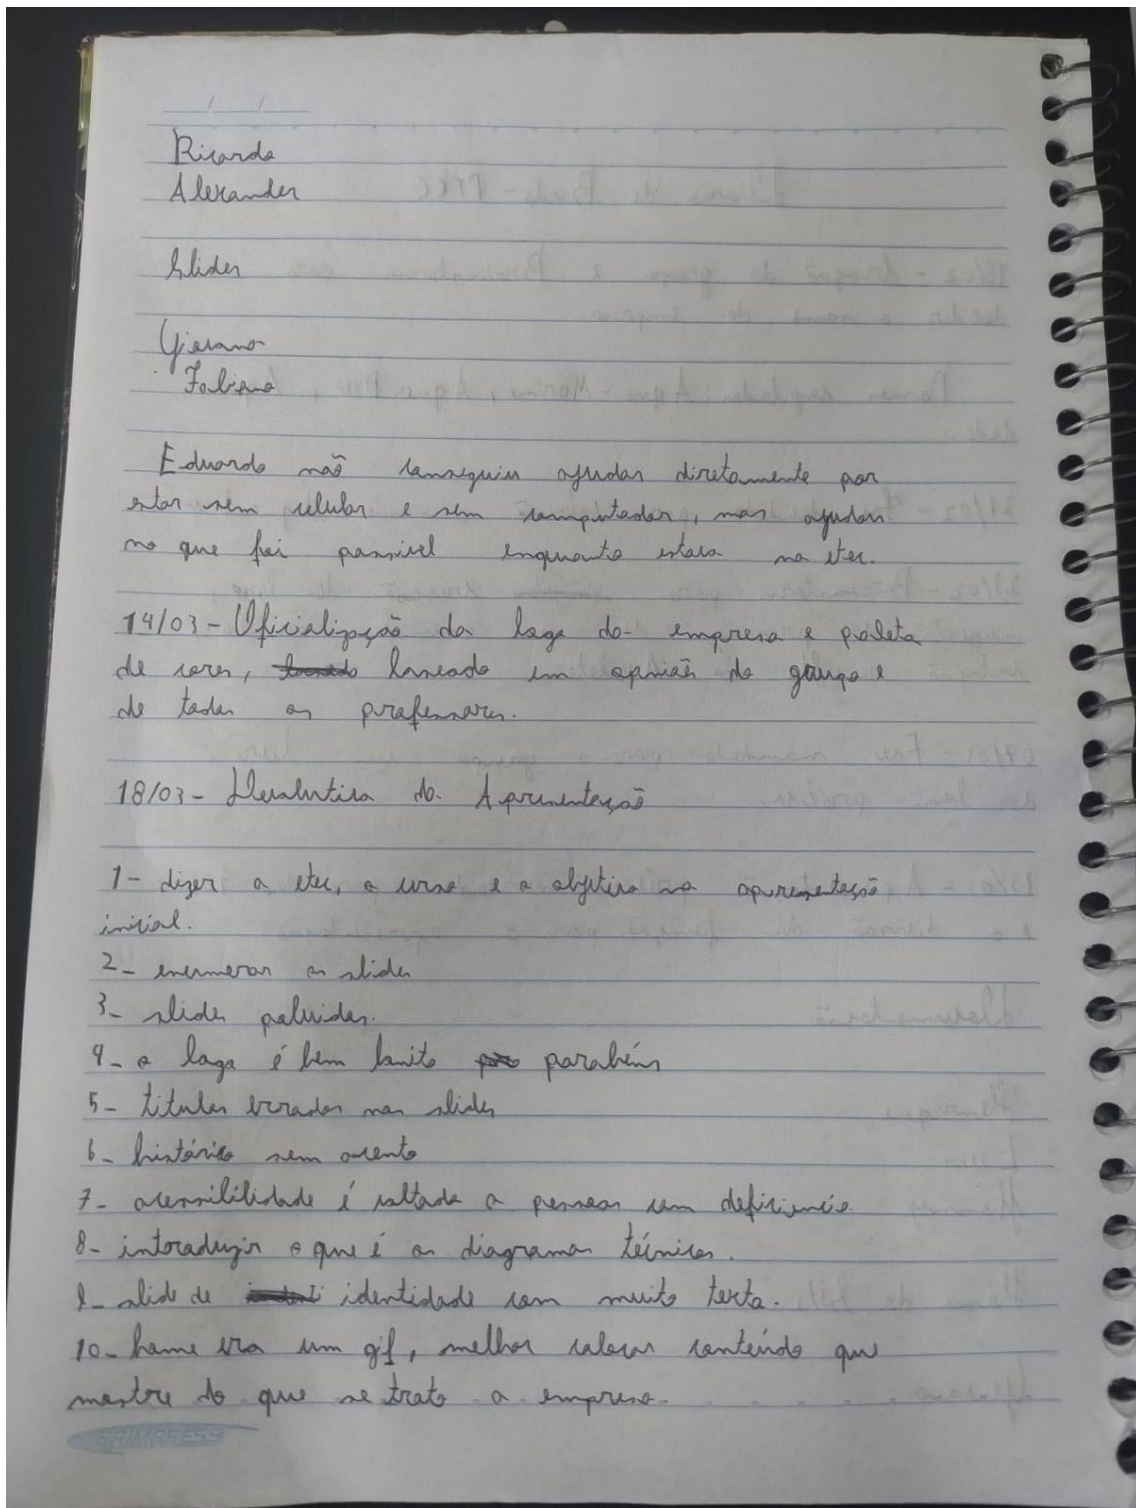 Ricardo
Alexander
Slides
Fabiano
Eduardo não conseguiu ajudar diretamente por
estar sem celular e sem computador, mas ajudou
no que foi possivel enquanto estava na etec.
14/03 - Oficialização da logo da empresa e paleta
de cores, baseado em opniões do grupo e
de todos os professores.
18/03 - Devolutiva da Apresentação
1- dizer a etec, o curso e o objetivo na apresentação
inicial.
2- enumerar os slides
3- slides poluidos.
4- a logo é bem bonito parabéns
5- titulos errados nos slides
6- histórico sem acento
7- acessibilidade é voltada a pessoas com deficiencia.
8- introduzir o que é os diagramas técnicos.
9- slide de identidade com muito texto.
10- home era um gif, melhor colocar conteúdo que
mostre do que se trata a empresa.
SPIMPRESS